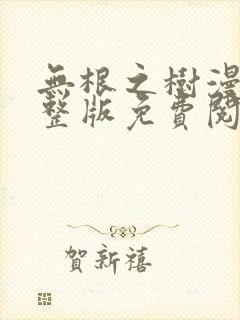 無根之樹漫
整版免費閱
賀新禧